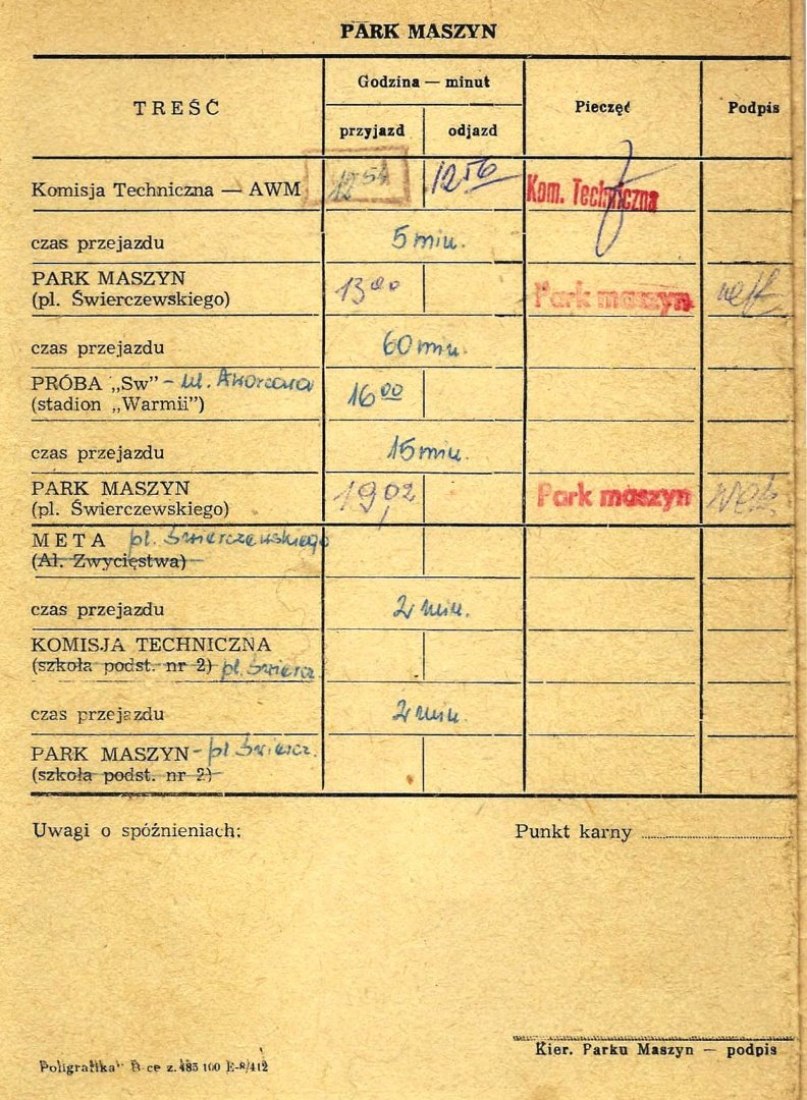 PARK MASZYN
TREŚĆ
Godzina — minut
przyjazd
odjazd
Pieczęć
Podpis
Komisja Techniczna — AWM
12 54
12 56
Kom. Techniczna
czas przejazdu
5 min.
PARK MASZYN
(pl. Świerczewskiego)
13 00
Park maszyn
czas przejazdu
60 min.
PRÓBA „Sw" - ul.
(stadion „Warmii")
16 00
czas przejazdu
15 min.
PARK MASZYN
(pl. Świerczewskiego)
19 02
Park maszyn
META pl. Świerczewskiego
(Al. Zwycięstwa)
czas przejazdu
2 min.
KOMISJA TECHNICZNA
(szkoła podst. nr 2) pl. Świercz
czas przejazdu
2 min.
PARK MASZYN - pl Świercz.
(szkoła podst. nr 2)
Uwagi o spóźnieniach:
Punkt karny
Kier. Parku Maszyn — podpis
z. 485 100 E-8/412